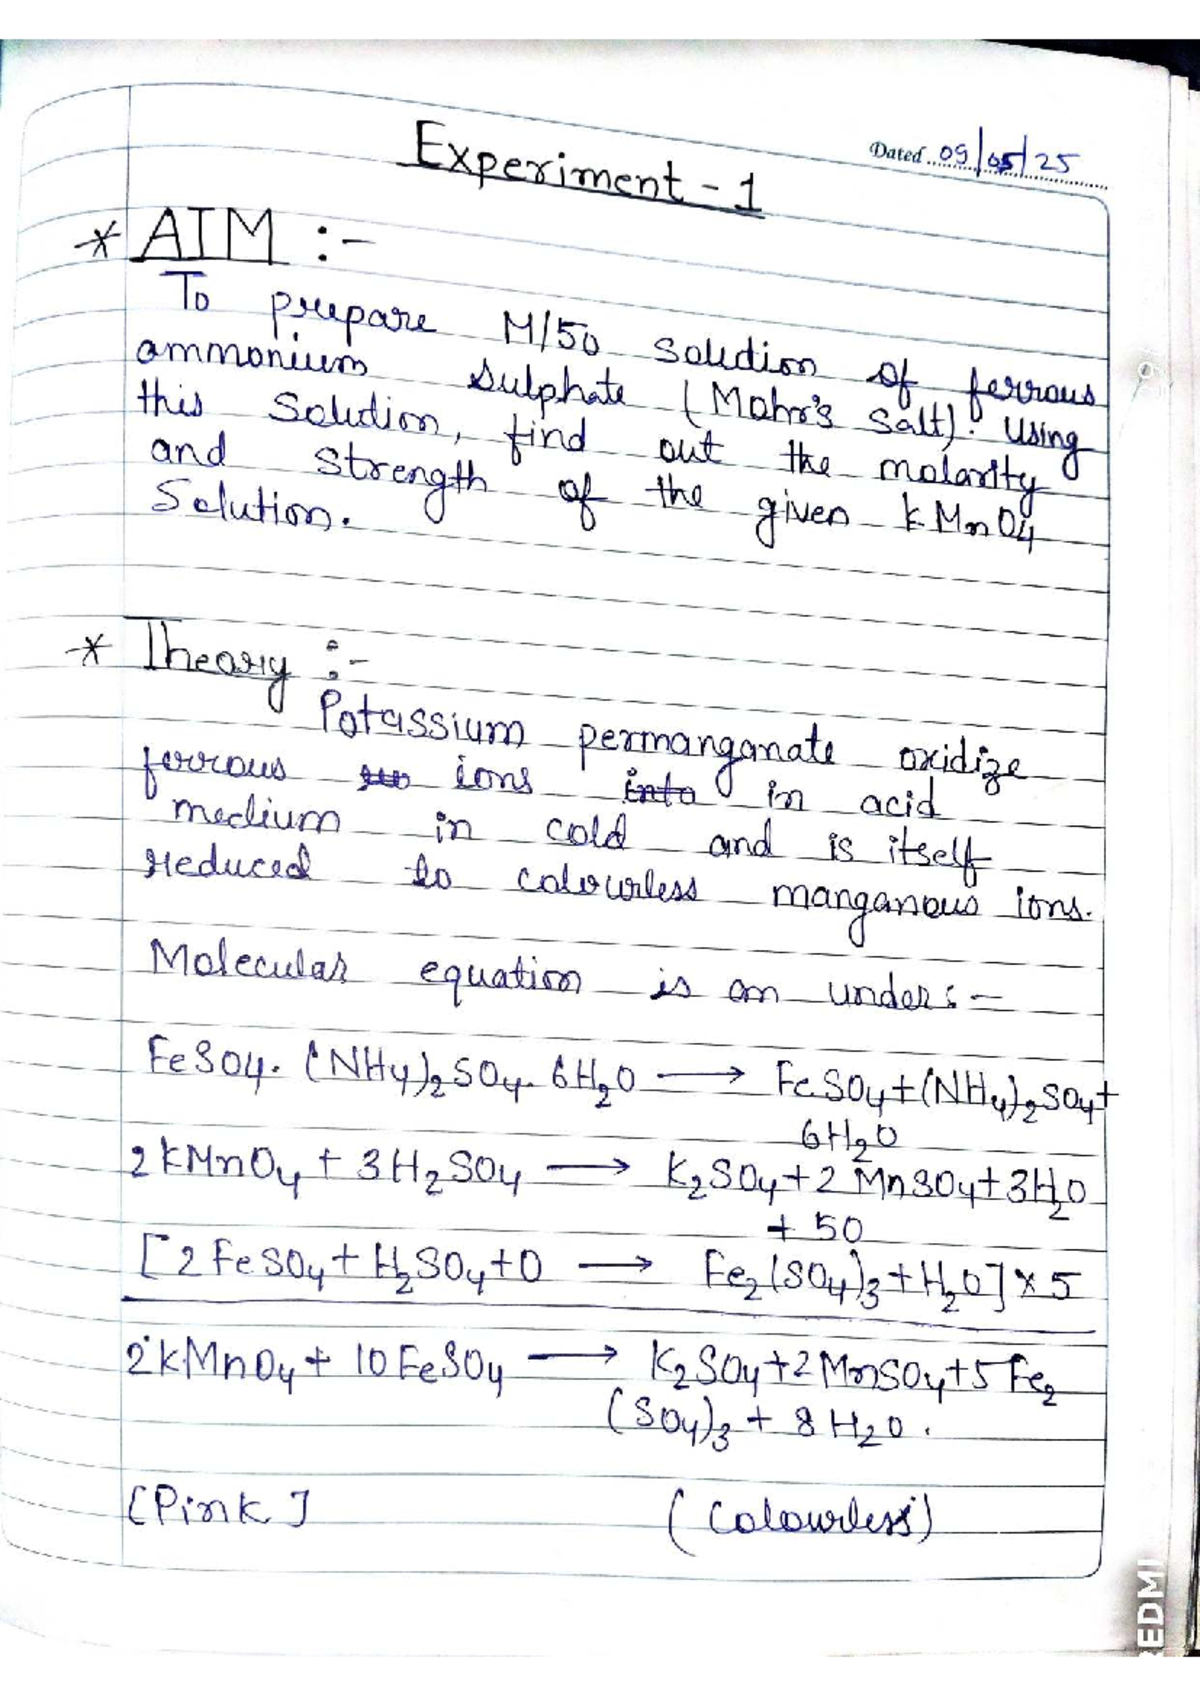 Experiment - 1
Dated..09/05/25
* AIM :-
To prepare M/50 Solution of ferrous
ammonium Sulphate (Mohr's Salt). Using
this Solution, find out the molarity
and strength of the given KMnO4
Solution.
* Theory :-
Potassium permanganate oxidize
ferrous ions into in acid
medium in cold and is itself
reduced to colourless manganous ions.
Molecular equation is an under :-
FeSO4. (NH4)2SO4. 6H2O ⟶ FeSO4+(NH4)2SO4+
6H2O
2KMnO4 + 3H2SO4 ⟶ K2SO4+2MnSO4+3H2O
+ 5O
[2FeSO4+H2SO4+O ⟶ Fe2(SO4)3+H2O]×5
2KMnO4+ 10FeSO4 ⟶ K2SO4+2MnSO4+5Fe2
(SO4)3 + 8H2O.
[Pink] (Colourless)
REDMI